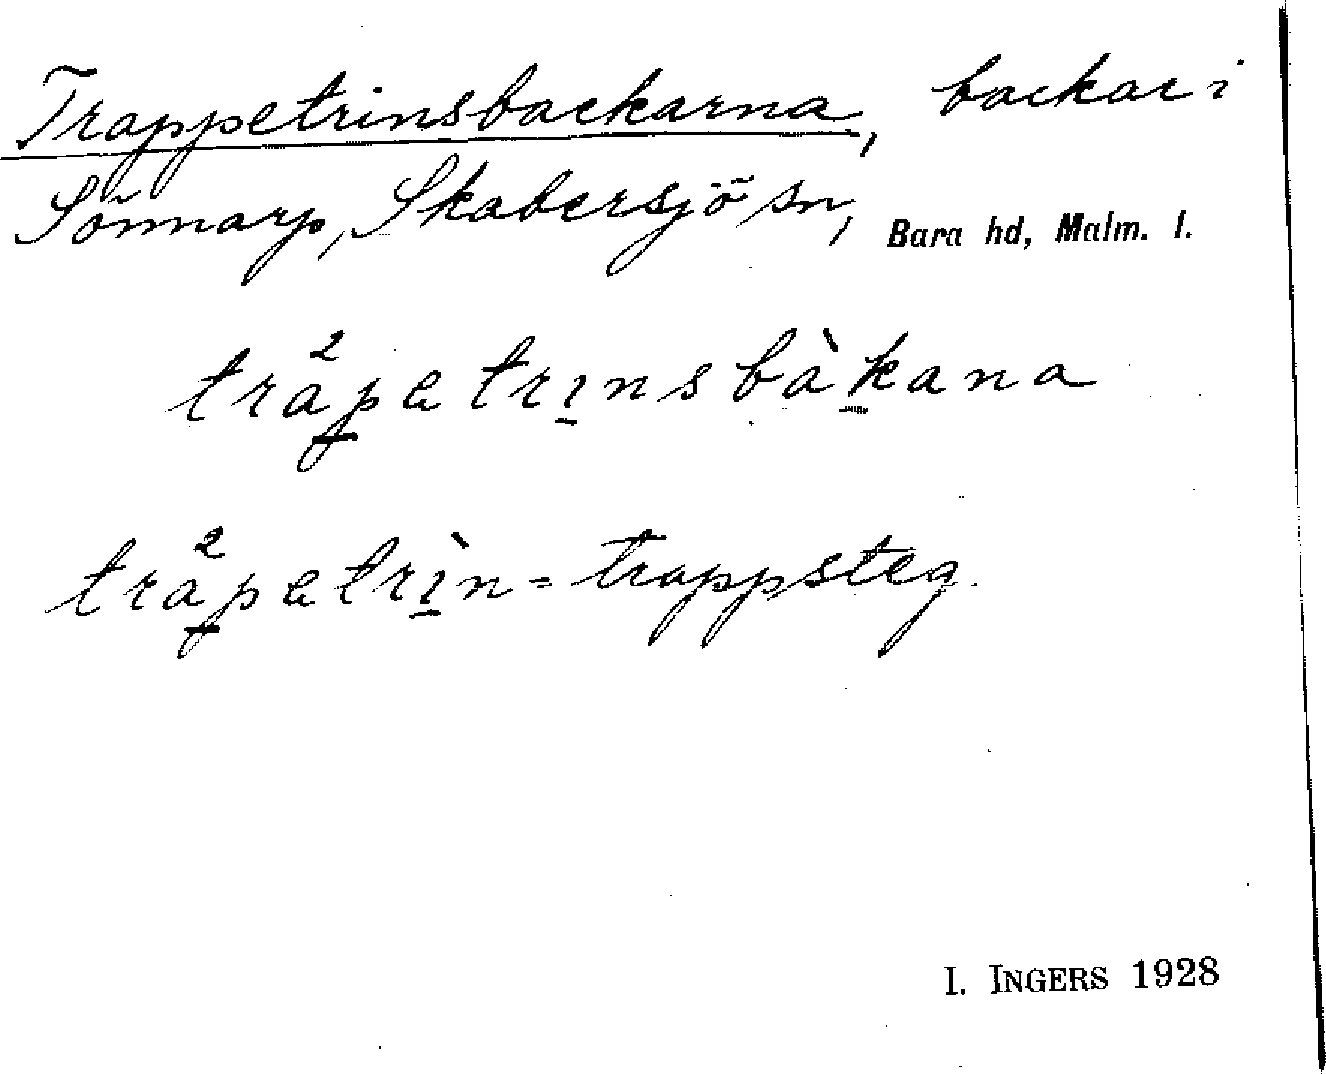 Trappetrinsbackarna, backar i
Sönnarp, Skabersjö sn, Bara hd, Malm. l.
trå²petrinsbàkana
trå²petrìn = trappsteg.
I. INGERS 1928